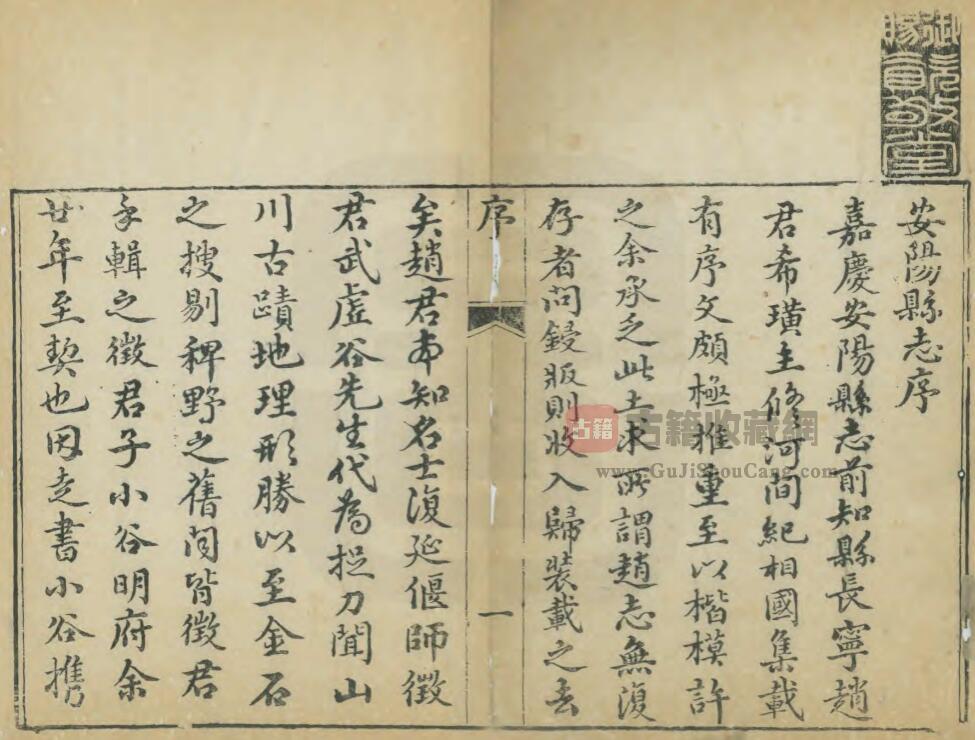 安陽縣志序
嘉慶安陽縣志前知縣長寧趙
君希璜主修河間紀相國集載
有序文頗極推重至以楷模許
之余承乏此土求所謂趙志無復
存者問鋟版則收入歸裝載之去
序
一
矣趙君本知名士復延偃師徵
君武虛谷先生代為捉刀聞山
川古蹟地理形勝以至金石
之搜剔稗野之舊聞皆徵君
手輯之徵君子小谷明府余
廿年至契也因走書小谷攜
古籍
古籍收藏網
www.GuJiShouCang.com